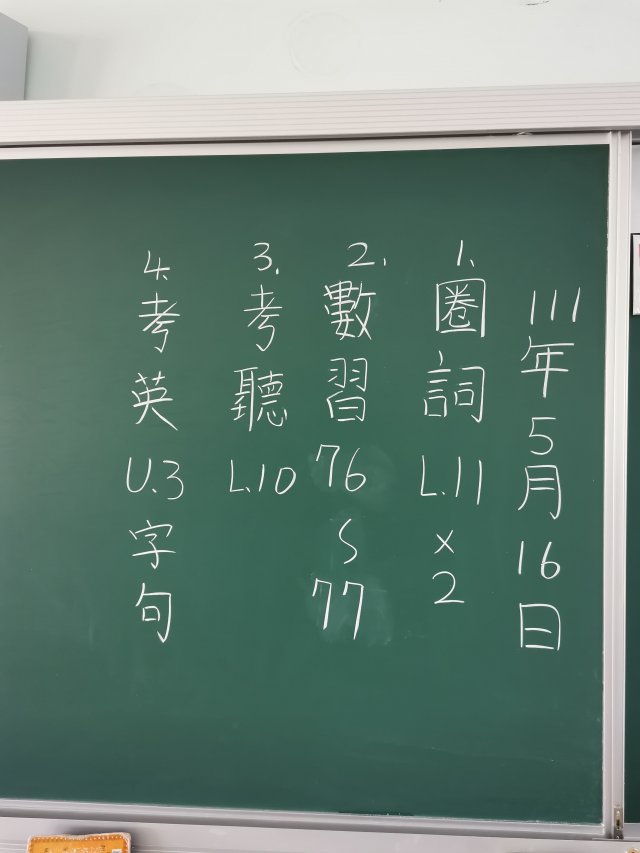 111年5月16日
1、圈詞L.11×2
2.數習76~77
3.考聽L.10
4.考英U.3字句